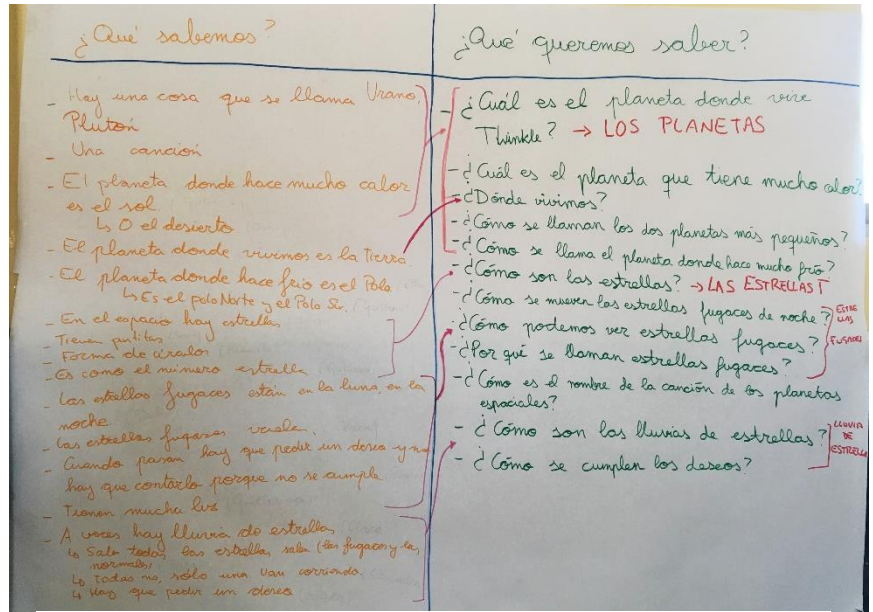 ¿Qué sabemos?
- Hay una cosa que se llama Urano,
Plutón
- Una canción
- El planeta donde hace mucho calor
es el sol
↳ O el desierto
- El planeta donde vivimos es la Tierra
- El planeta donde hace frío es el Polo
↳ Es el polo Norte y el Polo Sur
- En el espacio hay estrellas
- Tienen puntitas
- Forma de círculos
- Es como el número estrella
- Las estrellas fugaces están en la luna, en la
noche
- Las estrellas fugaces vuelan.
- Cuando pasan hay que pedir un deseo y no
hay que contarlo porque no se cumple
- Tienen mucha luz
- A veces hay lluvia de estrellas
↳ Salen todas las estrellas, salen (las fugaces y las
normales)
↳ Todas no, sólo una van corriendo.
↳ Hay que pedir un deseo
¿Qué queremos saber?
- ¿Cuál es el planeta donde vive
Thinkle? → LOS PLANETAS
- ¿Cuál es el planeta que tiene mucho calor?
- ¿Dónde vivimos?
- ¿Cómo se llaman los dos planetas más pequeños?
- ¿Cómo se llama el planeta donde hace mucho frío?
- ¿Cómo son las estrellas? → LAS ESTRELLAS
- ¿Cómo se mueven las estrellas fugaces de noche?
- ¿Cómo podemos ver estrellas fugaces?
- ¿Por qué se llaman estrellas fugaces?
ESTRE
LLAS
FUGACES
- ¿Cómo es el nombre de la canción de los planetas
espaciales?
- ¿Cómo son las lluvias de estrellas?
- ¿Cómo se cumplen los deseos?
LLUVIA
DE
ESTRELLAS